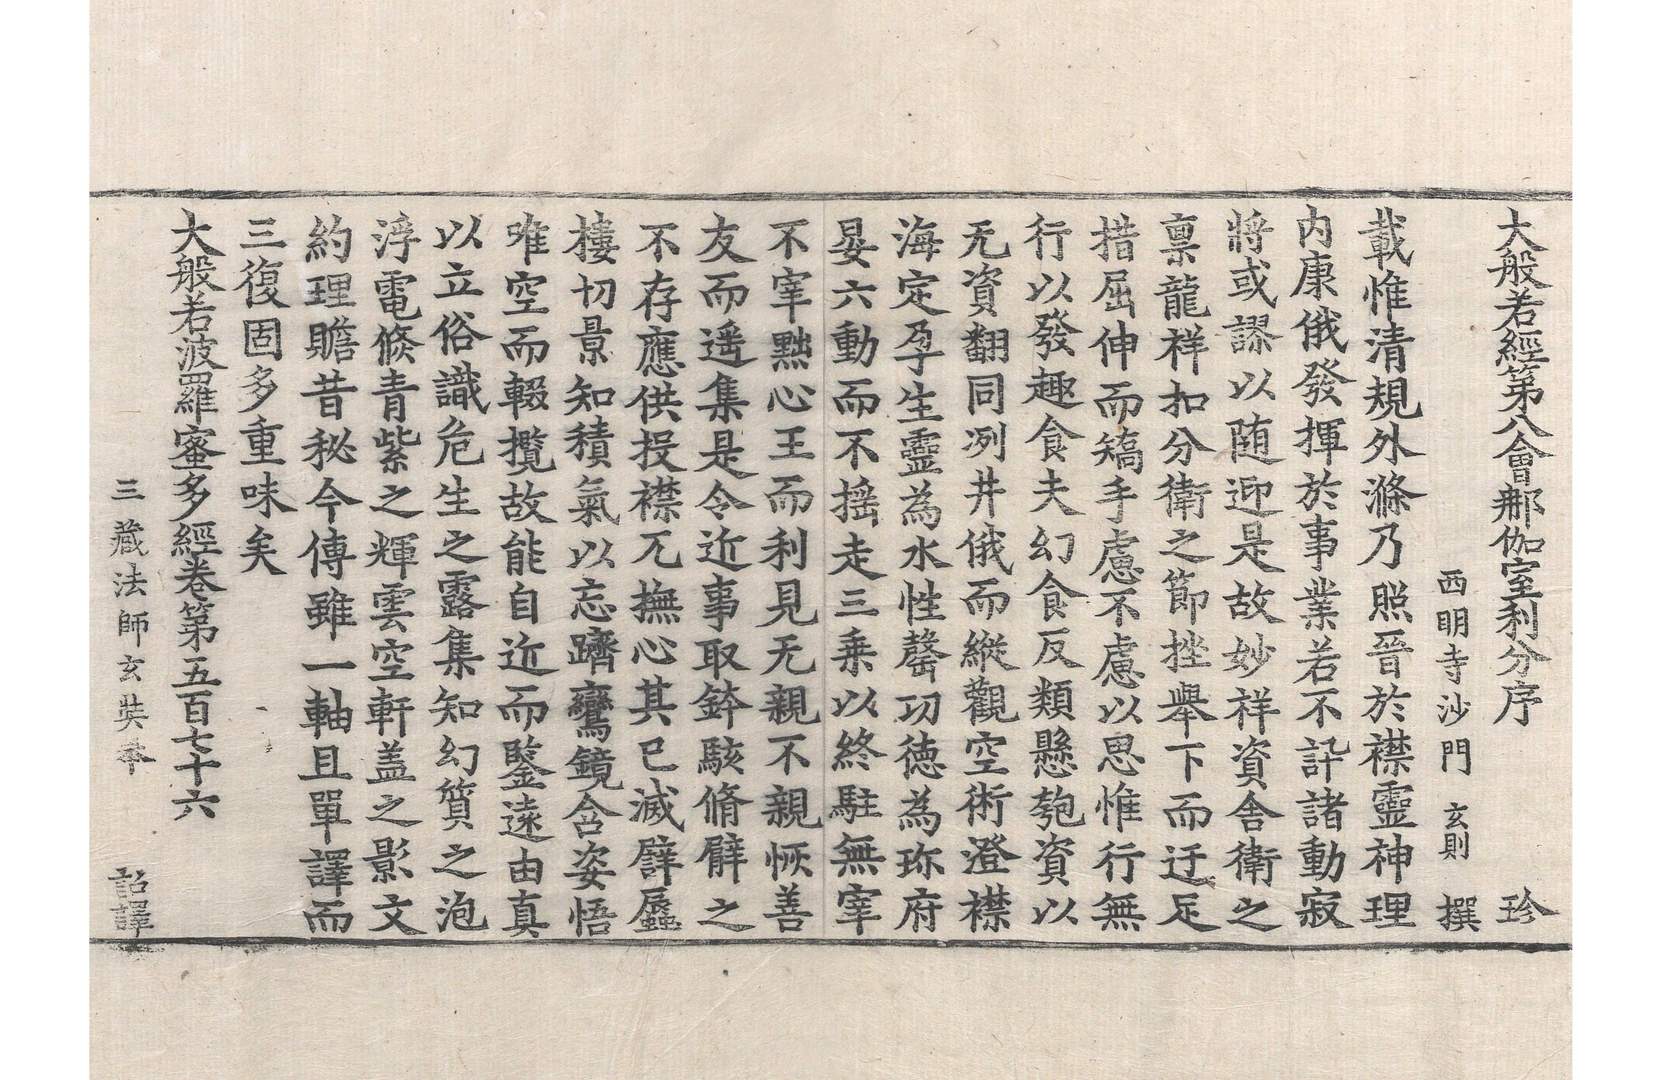 大般若經第八會那伽室利分序　珍
西明寺沙門　玄則　撰
載惟清規外滌乃照晉於襟靈神理
内康俄發揮於事業若不訐諸動寂
將或謬以随迎是故妙祥資舎衛之
禀龍祥扣分衛之節挫舉下而迂足
措屈伸而矯手慮不慮以思惟行無
行以發趣食夫幻食反類懸匏資以
无資翻同冽井俄而縱觀空術澄襟
海定孕生靈為水性罄㓛徳為珎府
晏六動而不揺走三乗以終駐無宰
不宰黜心王而利見无親不親恢善
友而遥集是令近事取鉢駭脩臂之
不存應供投襟兀撫心其已滅躃屧
樓切景知積氣以忘躋鸞鏡含姿悟
唯空而輟攬故能自近而鑒遠由真
以立俗識危生之露集知幻質之泡
浮電倐青紫之輝雲空軒盖之影文
約理贍昔秘今傳雖一軸且單譯而
三復固多重味矣
大般若波羅蜜多經巻第五百七十六
三藏法師玄奘奉　詔譯